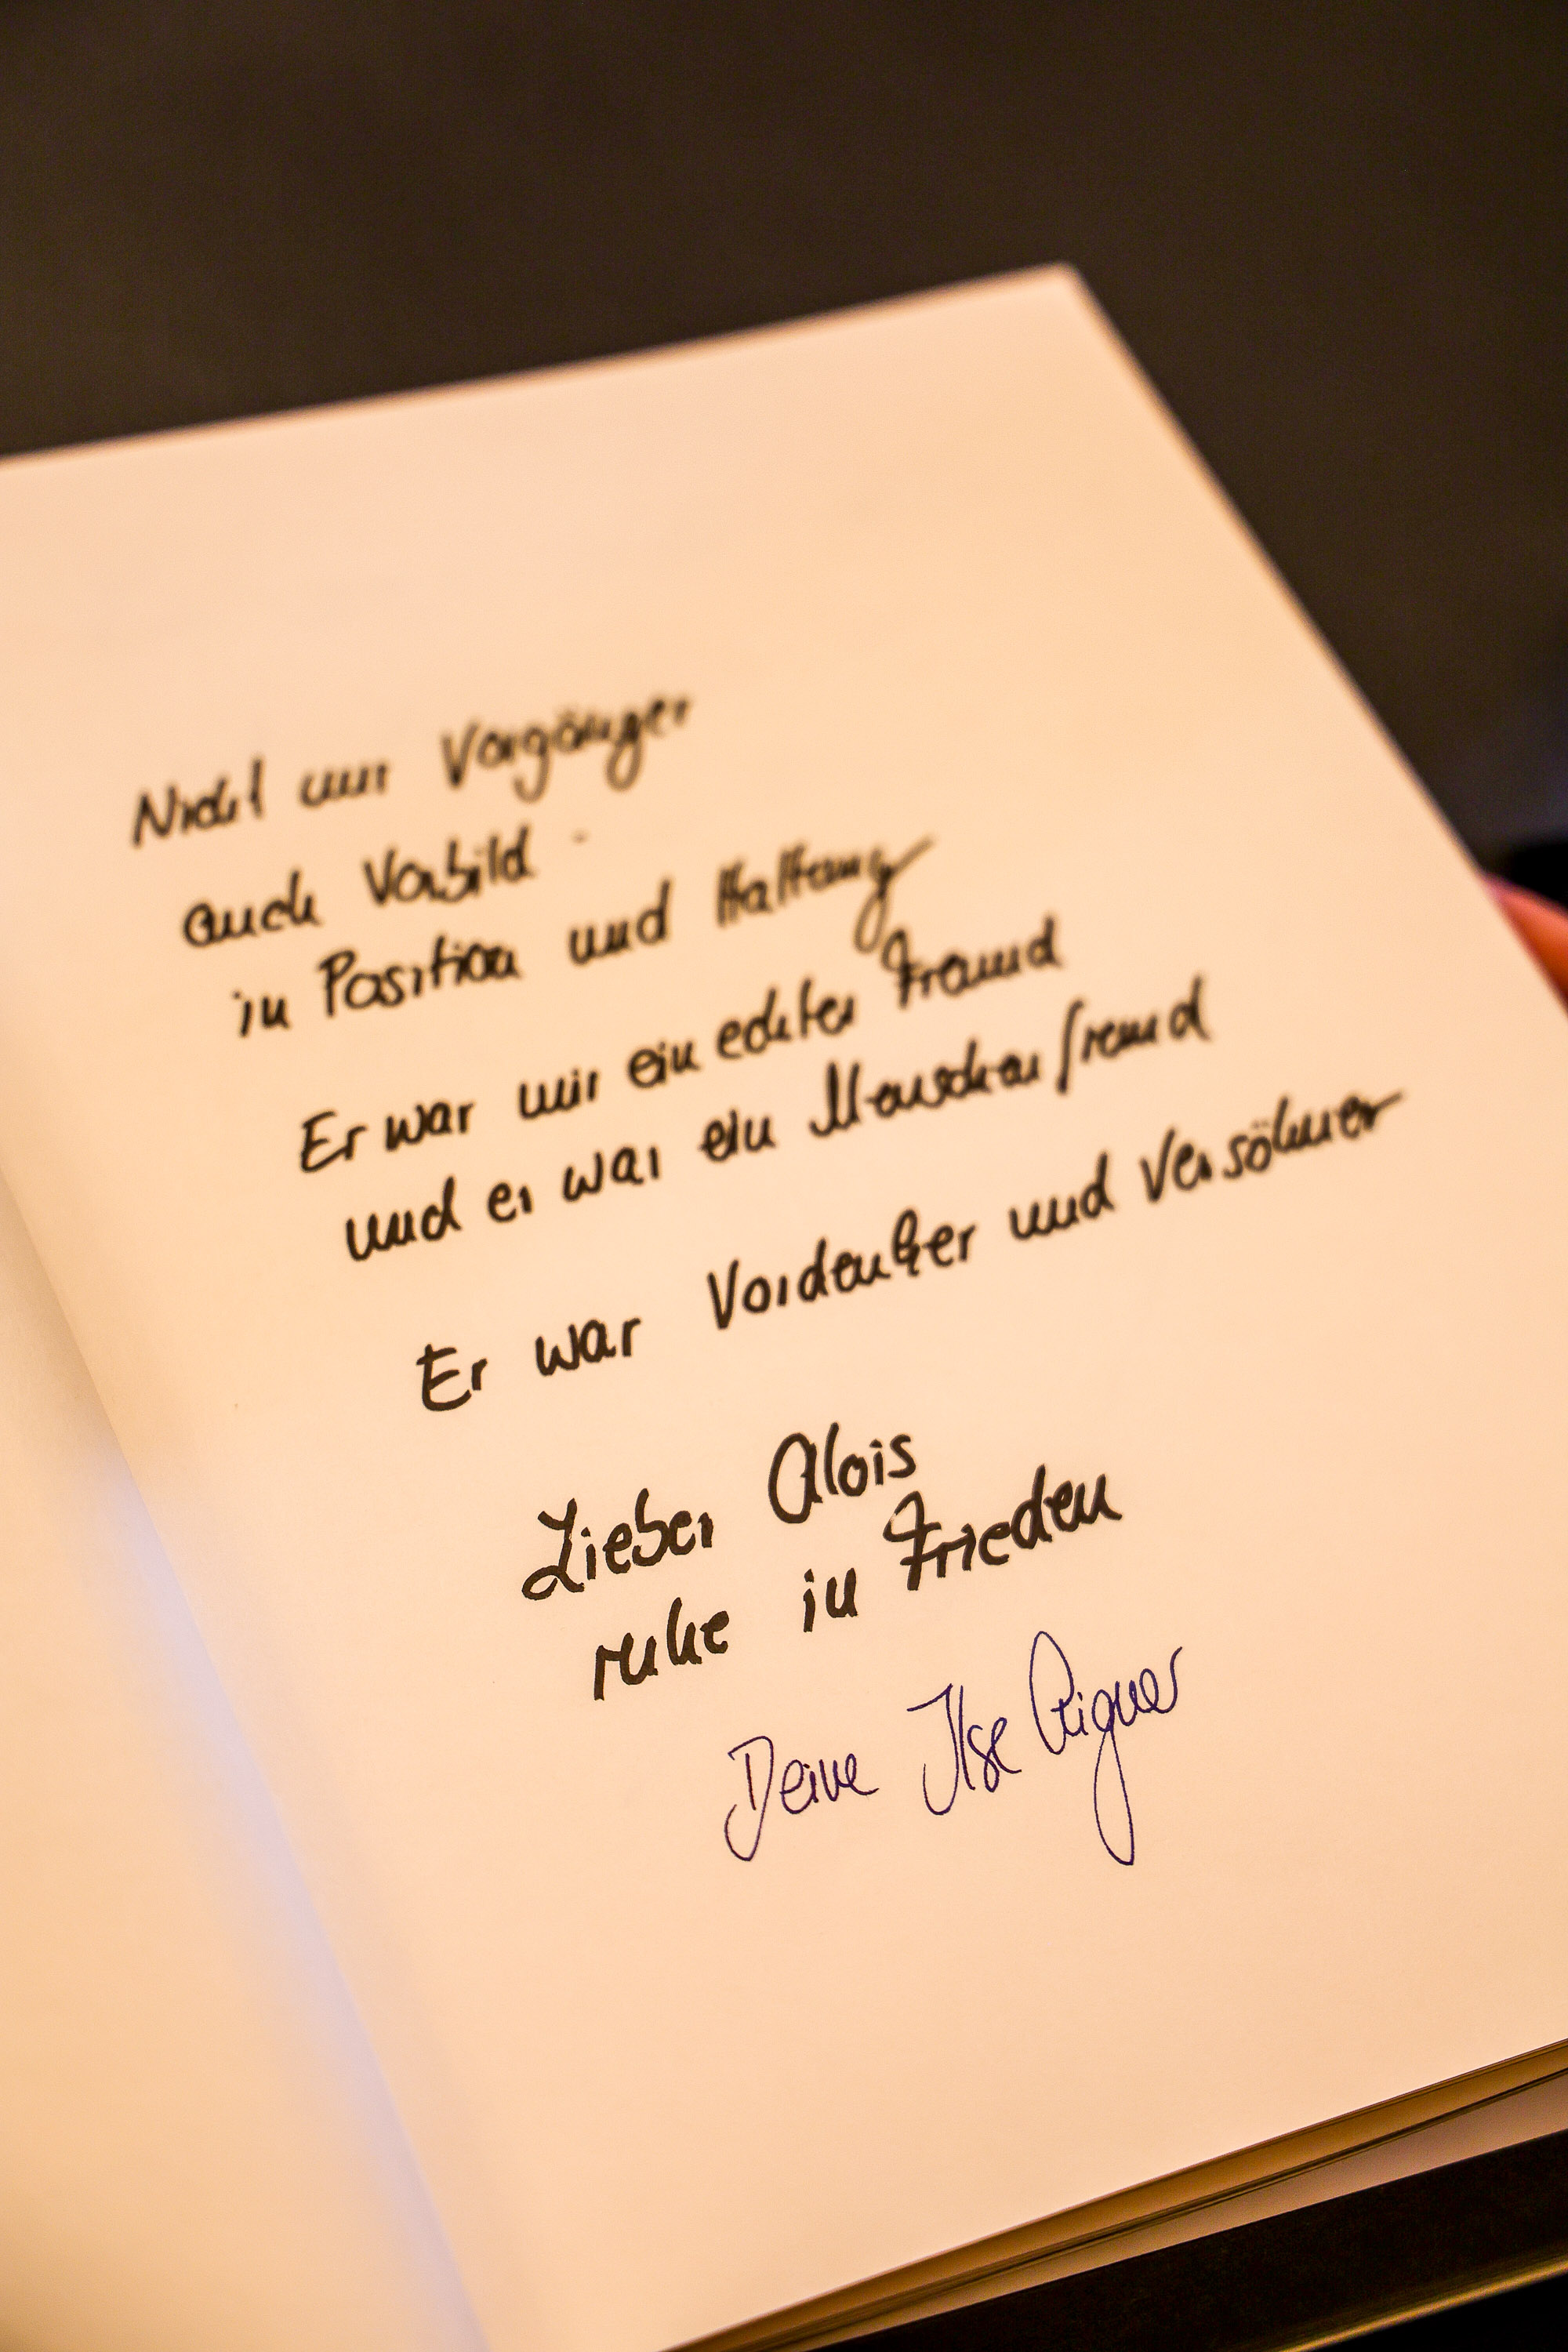 Nicht nur Vorgänger
auch Vorbild -
in Position und Haltung
Er war mir ein echter Freund
und er war ein Menschenfreund
Er war Vordenker und Versöhner
Lieber Alois
ruhe in Frieden
Deine Ilse Aigner